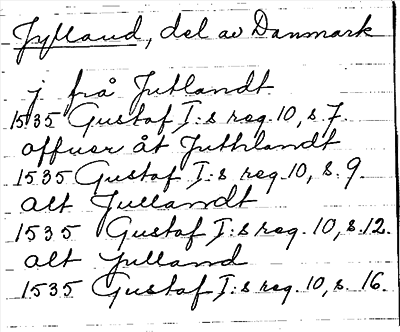 Jylland, del av Danmark
j frå Jutlandt
1535 Gustaf I:s reg. 10, s. 7.
offuer åt Juthlandt
1535 Gustaf I:s reg. 10, s. 9.
alt Jullandt
1535 Gustaf I:s reg. 10, s. 12.
alt Julland
1535 Gustaf I:s reg. 10, s. 16.